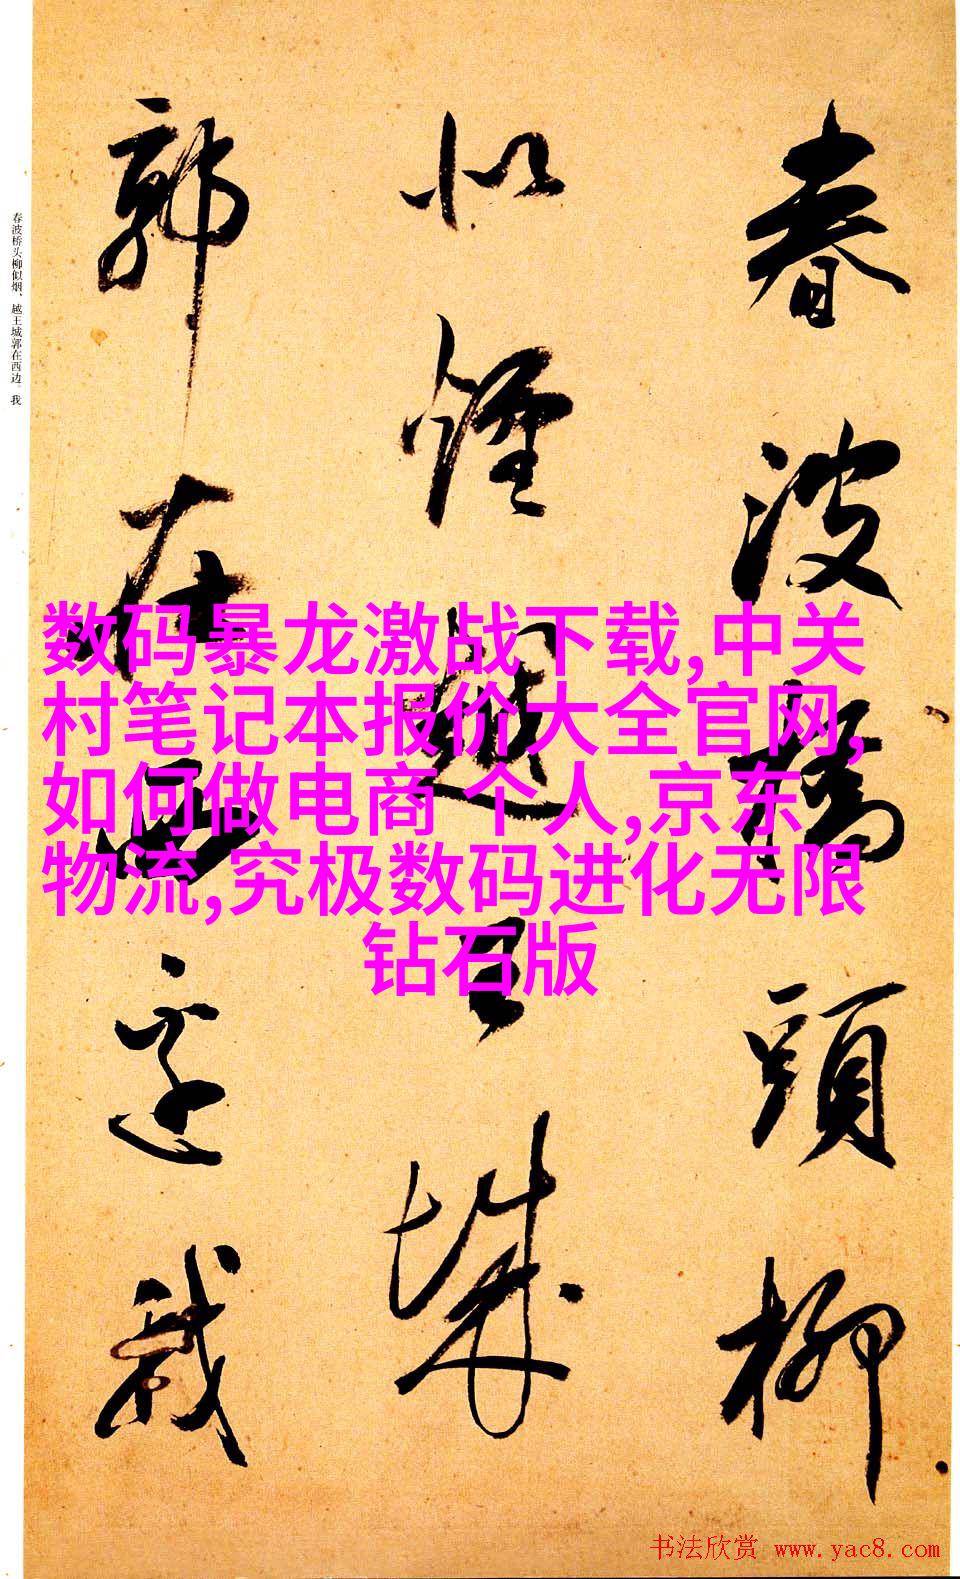 春波橋頭柳
似煙越王城
郭在西邊我
春波桥头柳似烟、越王城郭在西边。我
数码暴龙激战下载,中关
村笔记本报价大全官网,
如何做电商 个人,京东
物流,究极数码进化无限
钻石版
书法欣赏 www.yac8.com